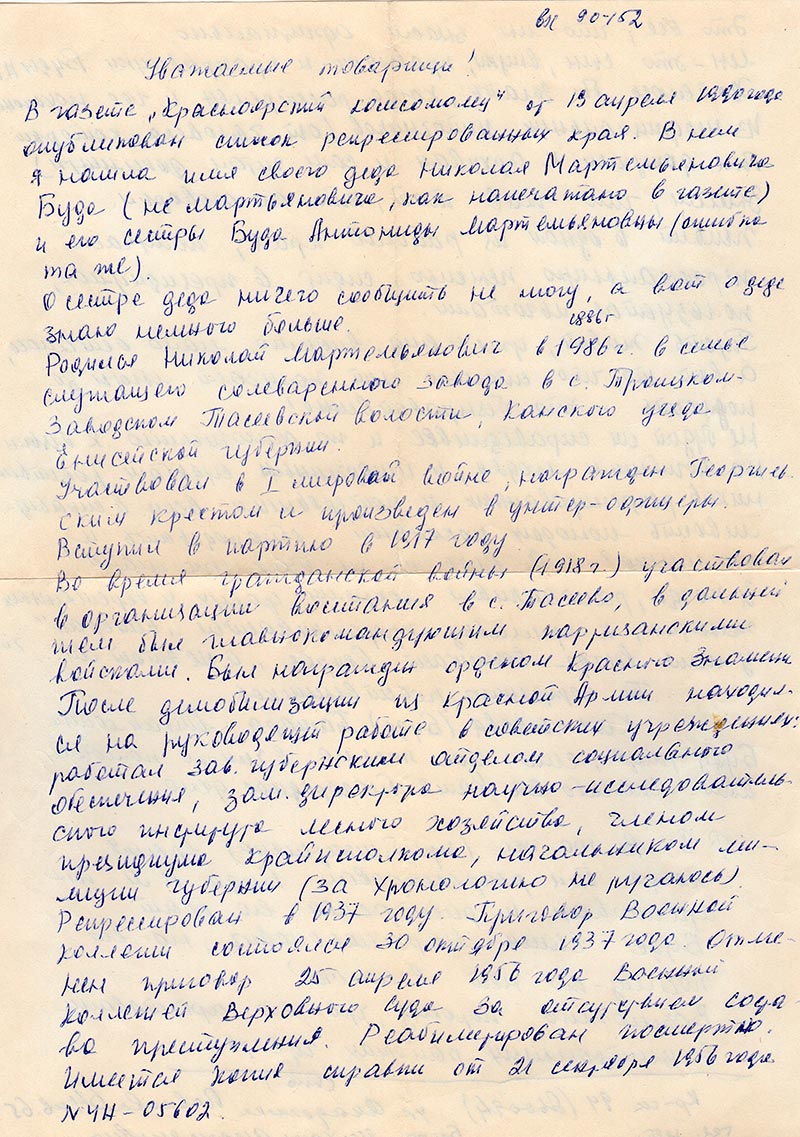 вх 90-152
Уважаемые товарищи!
В газете „Красноярский комсомолец" от 19 апреля 1990 года
опубликован список репрессированных края. В нем
я нашла имя своего деда Николая Мартемьяновича
Буда (не Мартьяновича, как напечатано в газете)
и его сестры Буда Антониды Мартемьяновны (ошибка
та же).
О сестре деда ничего сообщить не могу, а вот о деде
знаю немного больше.
1886г
Родился Николай Мартемьянович в 1986 г. в семье
служащего солеваренного завода в с. Троицком-
Заводском Тасеевской волости, Канского уезда
Енисейской губернии.
Участвовал в I мировой войне, награжден Георгиев-
ским крестом и произведен в унтер-офицеры.
Вступил в партию в 1917 году
Во время гражданской войны (1918 г.) участвовал
в организации восстания в с. Тасеево, в дальней
шем был главнокомандующим партизанскими
войсками. Был награжден орденом Красного Знамени
После демобилизации из Красной Армии находил-
ся на руководящ работе в советских учреждениях:
работал зав. губернским отделом социального
обеспечения, зам. директора научно-исследователь-
ского института лесного хозяйства, членом
президиума крайисполкома, начальником ми-
лиции губернии (за хронологию не ручаюсь)
Репрессирован в 1937 году. Приговор Военной
коллегии состоялся 30 октября 1937 года. Отме-
нен приговор 25 апреля 1956 года Военной
коллегией Верховного Суда за отсутствием соста-
ва преступления. Реабилитирован посмертно.
Имеется копия справки от 21 сентября 1956 года
N 4Н-05602.